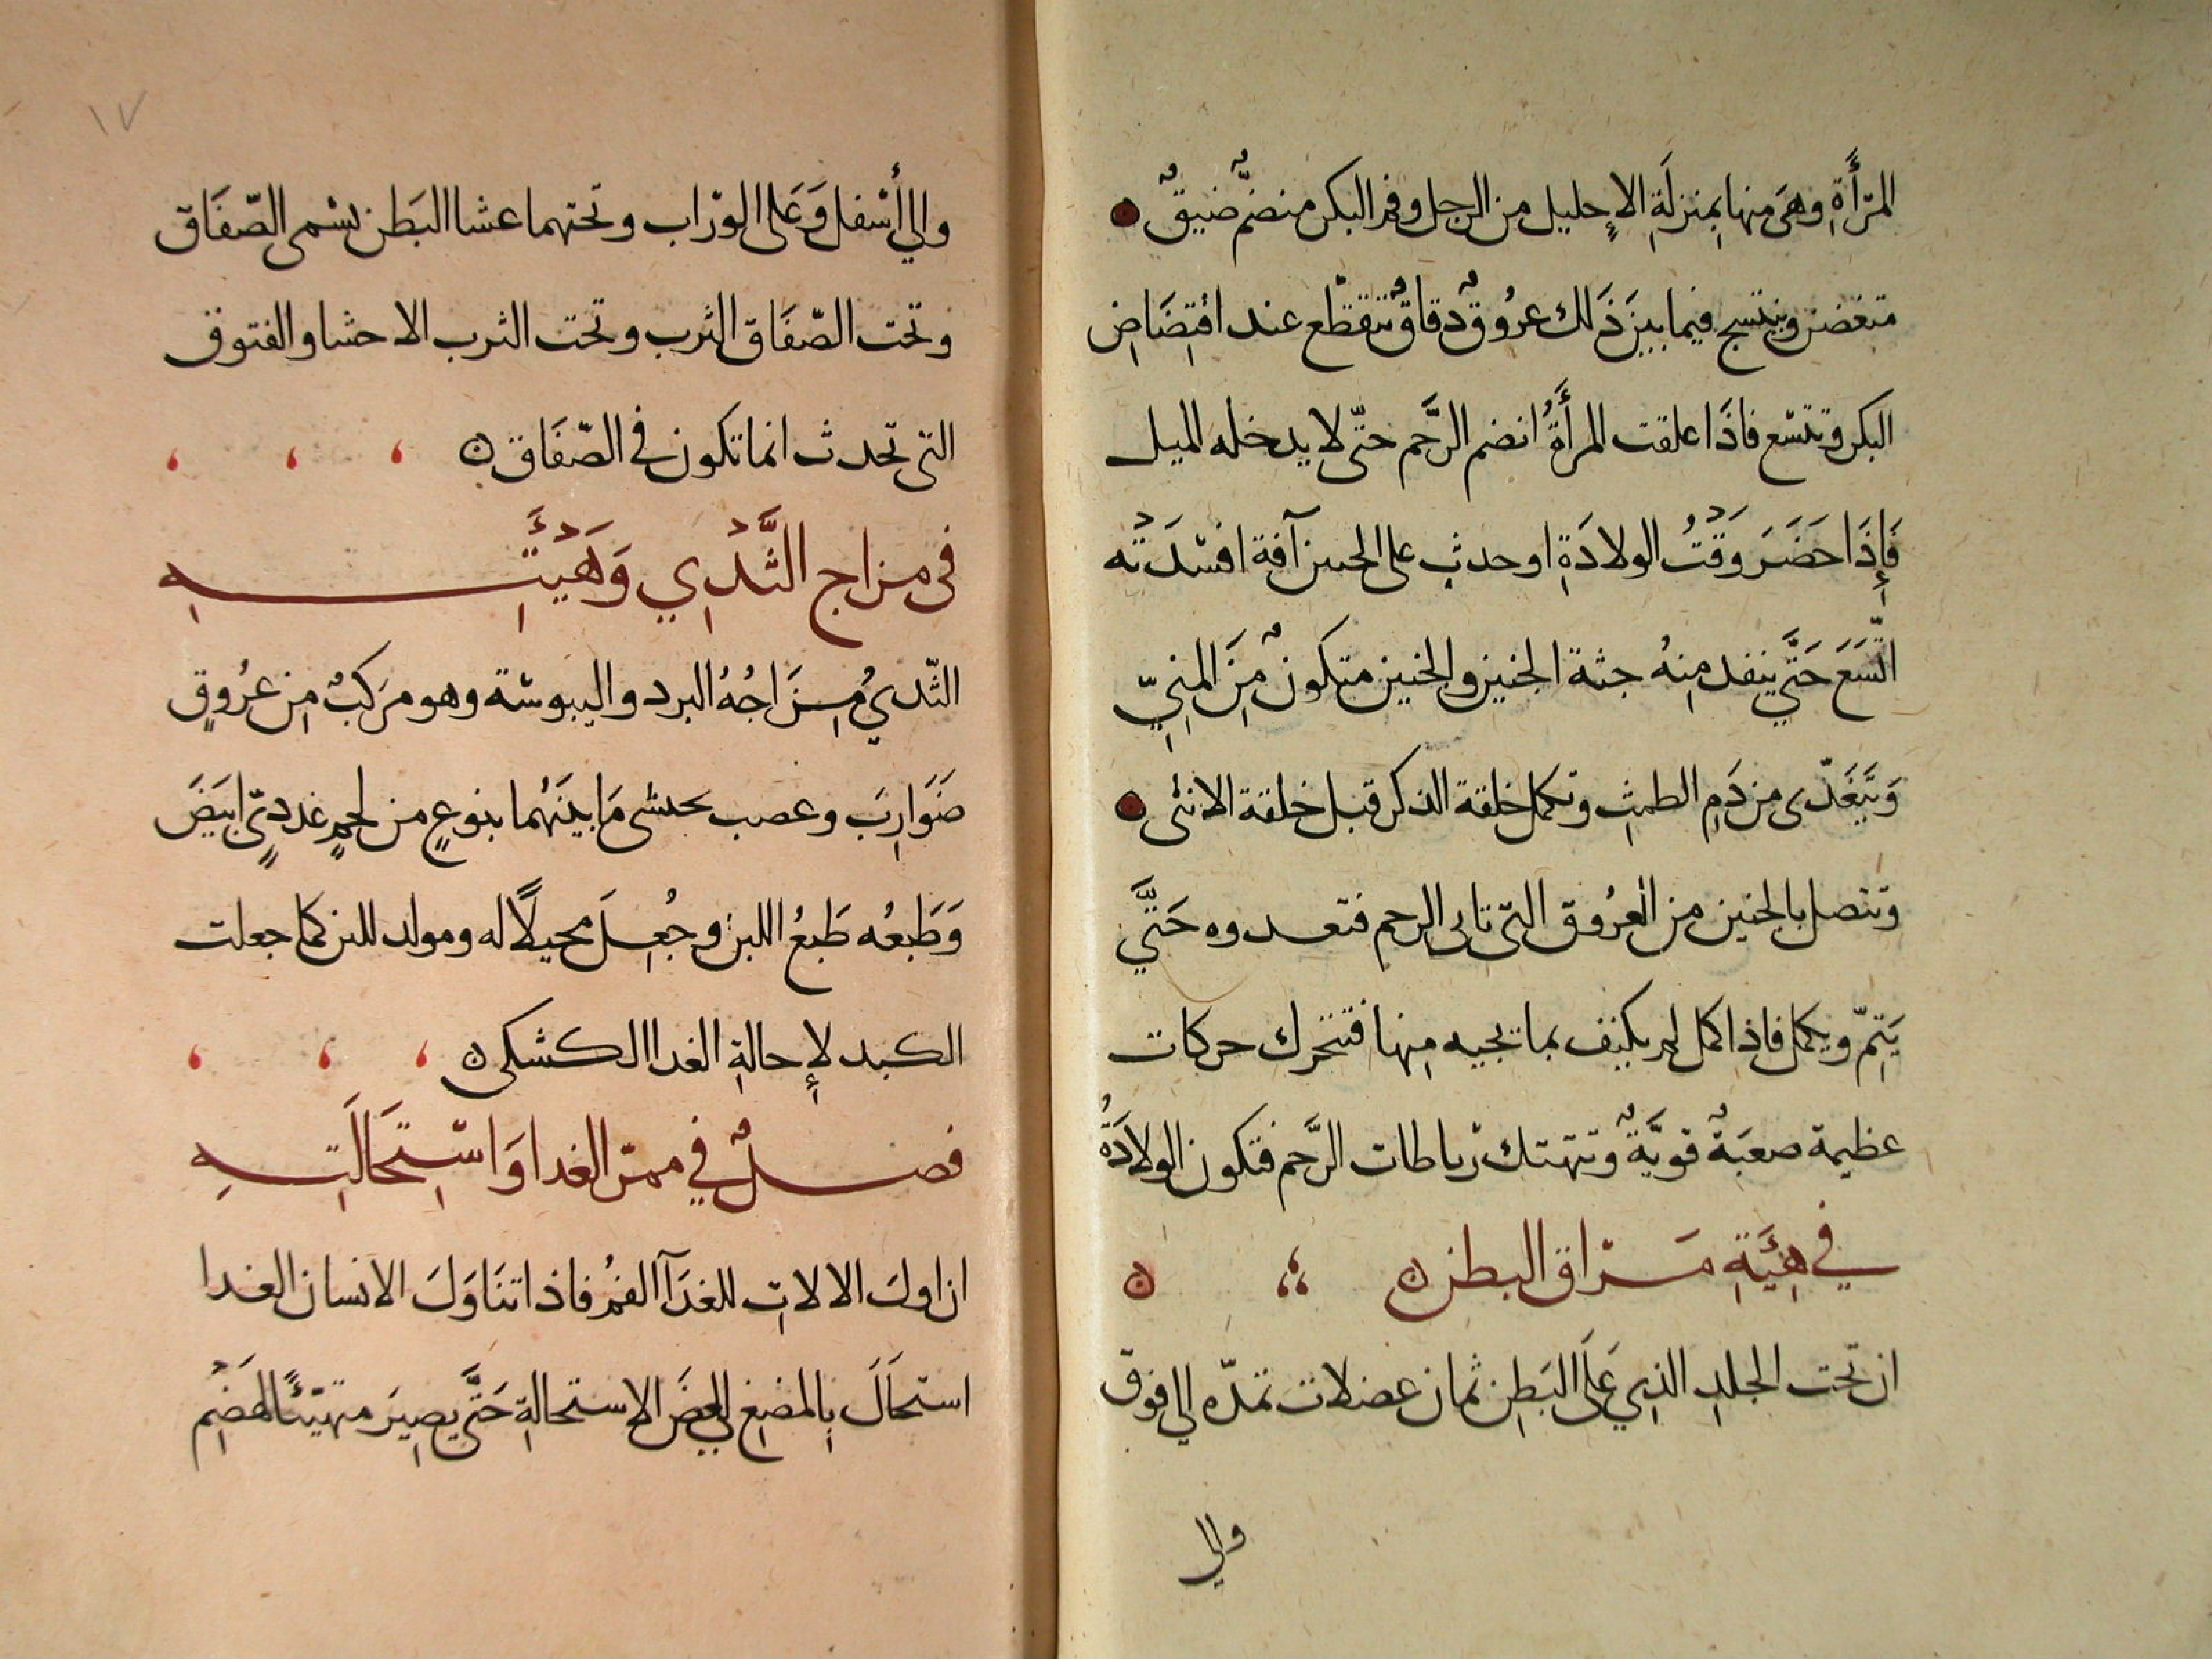 المَرْأَةِ وهَى منها بِمنزلَةِ الإحليل من الرجل وفم البكر منضمٌّ ضيقٌ
متغضن وينتسج فيما بين ذَلك عرُوقٌ دقاقٌ تتقطّع عند افتِضَاضِ
البكر وتتسع فاذَا علقت المرأَةُ انضم الرَّحم حتّى لا يدخله الميل
فَإِذَا حَضَرَ وَقْتُ الولادَةِ او حدث على الجنين آفة افسَدَته
اتّسَعَ حَتَّي ينفد مِنهُ جثة الجنين والجنين متكونٌ مِنَ المنِيّ
وَيَتَغَدّى من دَمِ الطمثِ وتكمل خلقة الذكر قبل خلقة الانثى
وتتصل بالجنين من العرُوق التى تاتى الرحم فتغدوه حَتَّي
يَتِمّ ويكمل فاذا كمل لم يكتف بما تجيه مِنها فتتحرك حركات
عظيمة صعبَةٌ قويَّةٌ وتتهتك رباطات الرَّحم فتكون الولادَةُ
في هيئَةِ مَراق البطن ن ن
ان تحت الجلدِ الذِي عَلَى البَطِن ثمان عضلات تمدّه الى فوق
والي
١٧
والي أَسْفل وَعَلى الورَاب وتحتهما عشا البَطن يسمى الصّفَاق
وتحت الصّفَاق الثرب وتحت الثرب الاحشا والفتوق
التى تحدث انما تكون في الصّفَاق ن
في مزاج الثَّدْيِ وَهَيْئَتِهِ
الثّديُ مِزَاجُهُ البرد واليبوسَة وهو مرَكبٌ مِن عرُوقٍ
ضَوَارِبَ وعصب يحشى مَا بينَهُما بنوعٍ من لحمٍ غددىّ ابيَضَ
وَطَبعُه طَبعُ اللبن وجُعِلَ محيلًا له ومولد للبن كما جعلت
الكبد لإِحالةِ الغدا الكشكى ن
فصلٌ في ممرّ الغدا وَاسْتِحَالَتِهِ
ان اولَ الالاتِ للغدَآ الفمُ فاذا تنَاوَلَ الانسان الغدا
استحَالَ بِالمضغِ لبعضَ الاستحالةِ حَتَّي يصِيرَ متهيّئًا لهَضْمِ